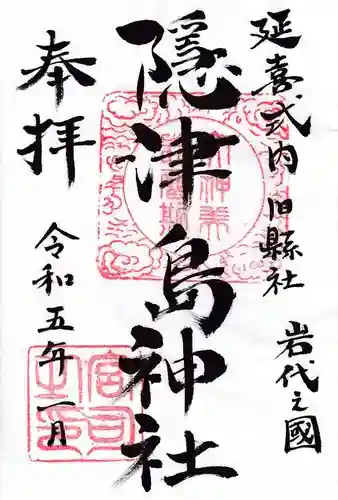 延喜式内旧縣社
岩代之國
隠津島神社
奉拝
令和五年一月